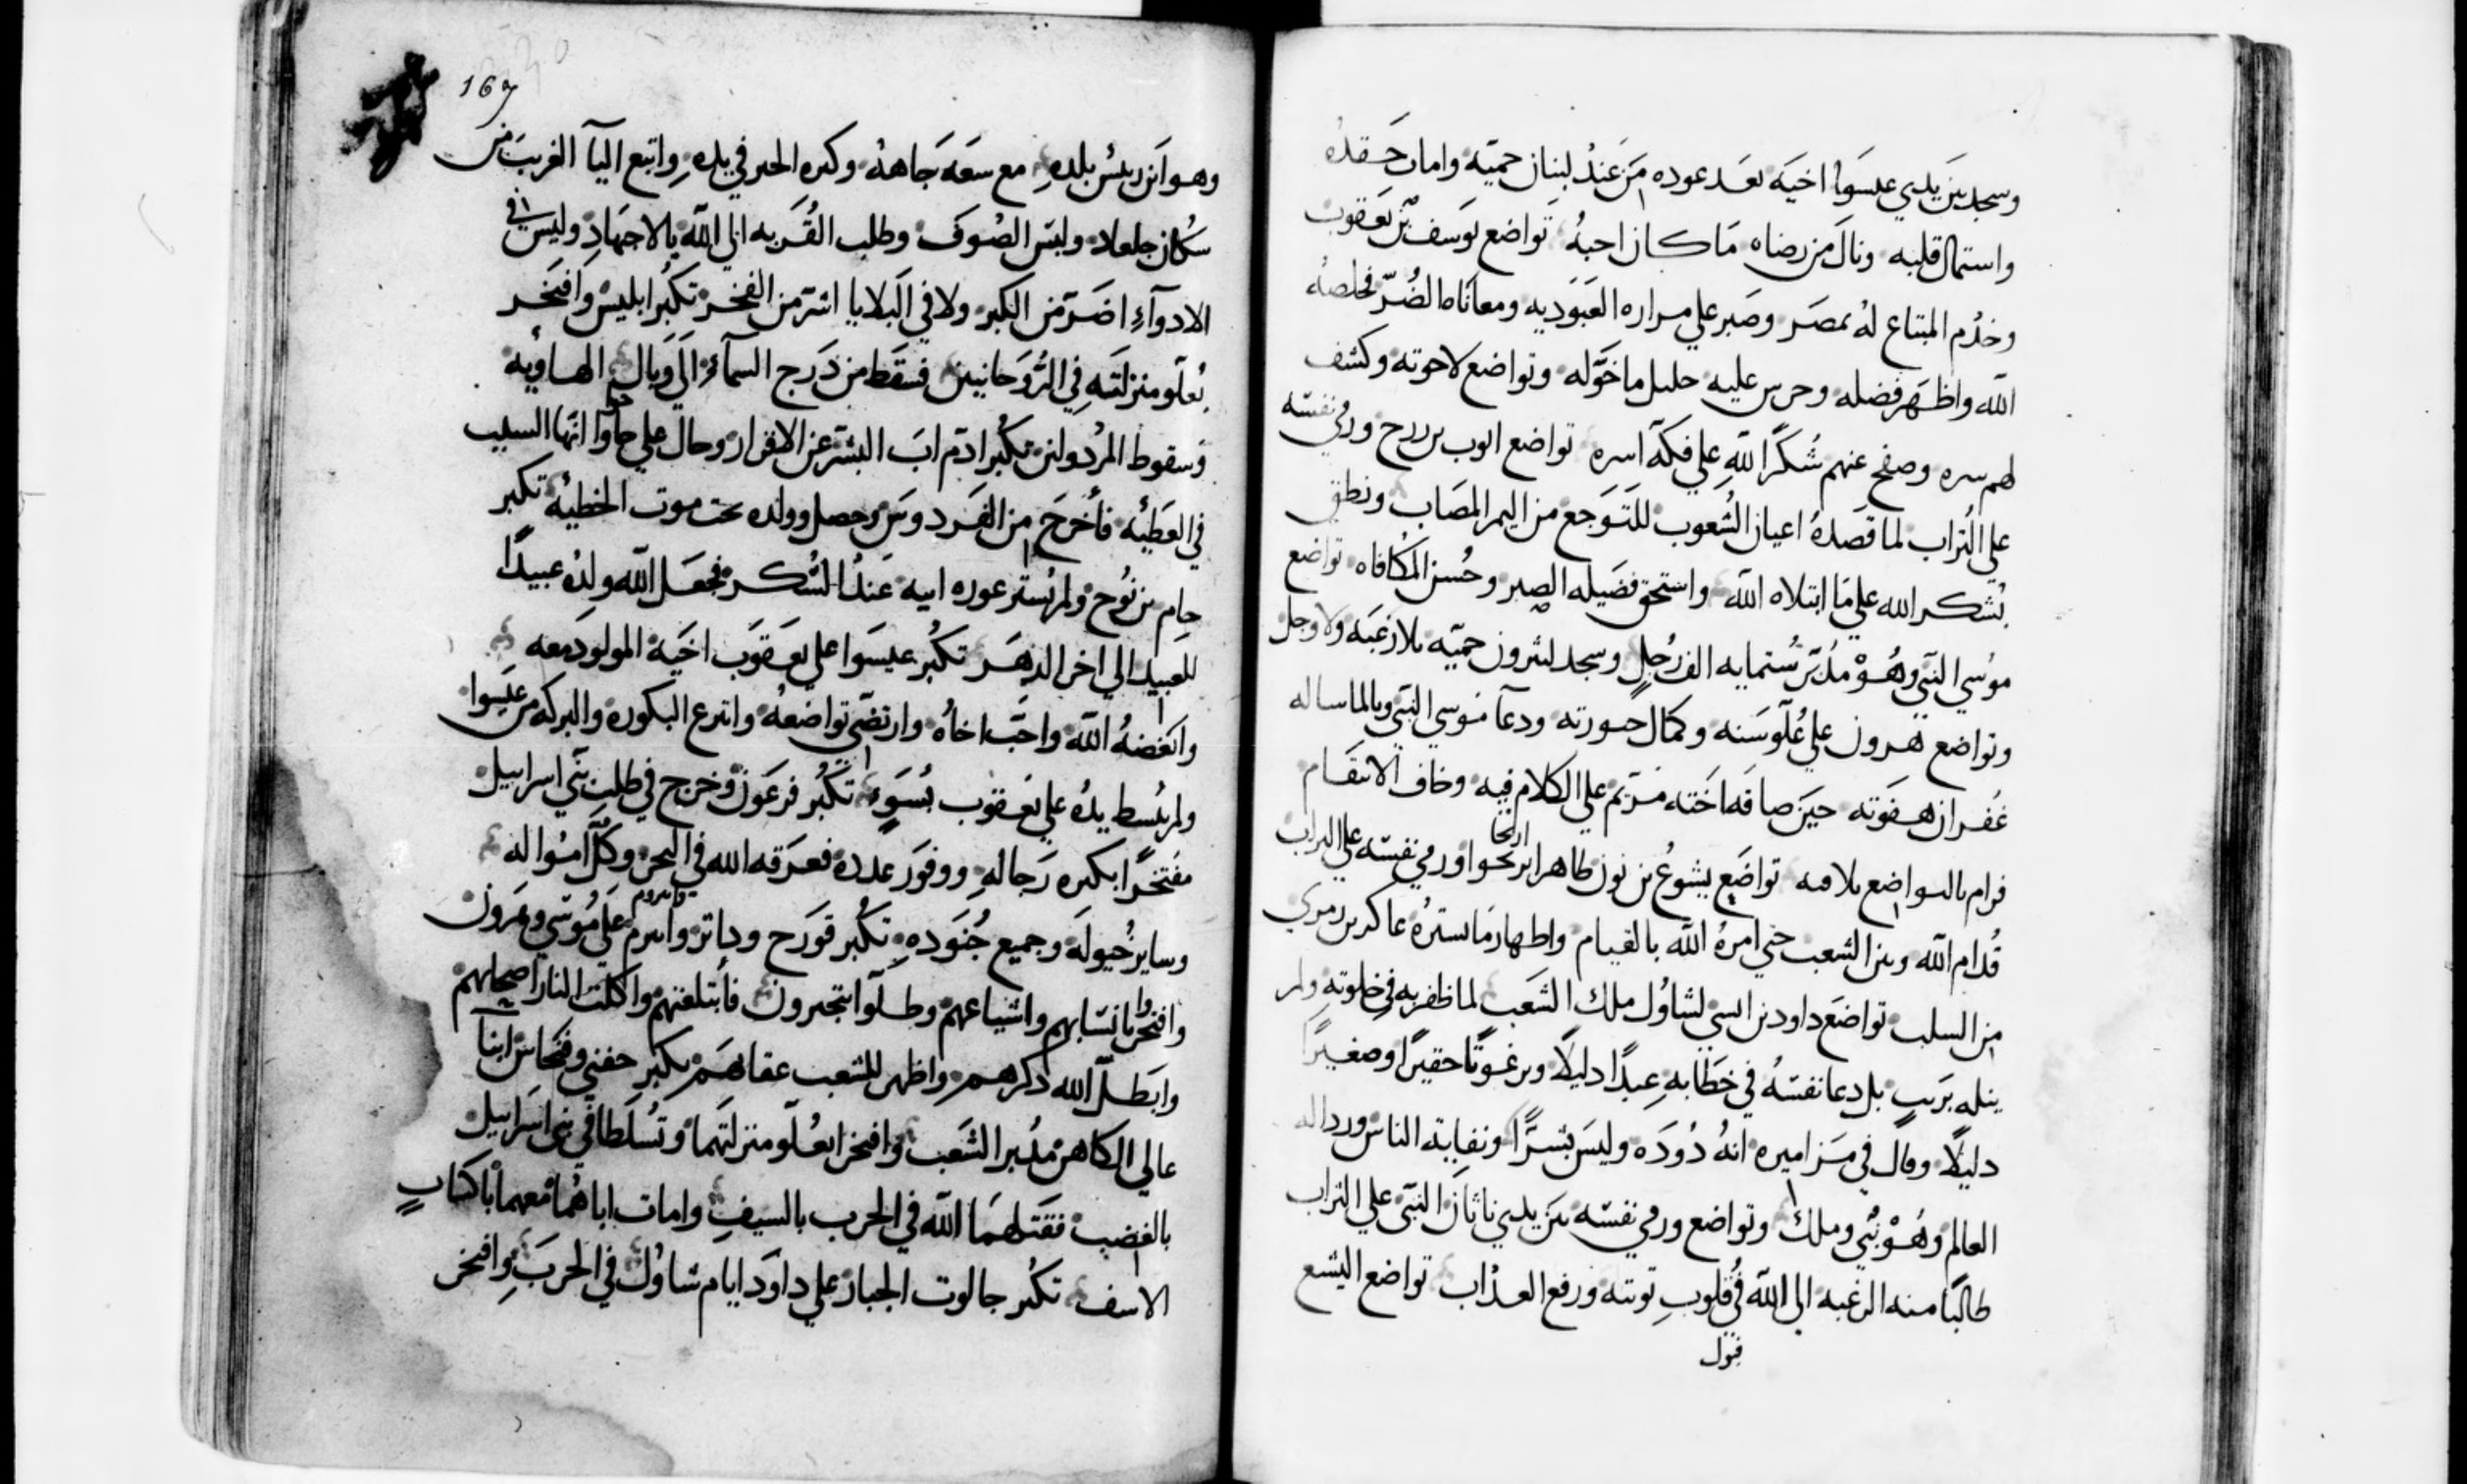 وسجد بين يدي عيسوا اخيه بعد عوده من عند لبنان حميه وامات حقده
واستمال قلبه ونال من رضاه ما كان احبه تواضع يوسف بن يعقوب
وخدم المبتاع له بمصر وصبر على مراره العبوديه ومعاناه الضر فخلصه
الله واظهر فضله وحرس عليه جليل ما خوله وتواضع لاخوته وكشف
لهم سره وصفح عنهم شكرا لله على فكه اسره تواضع ايوب بن زرح ورمي نفسه
علي التراب لما قصده اعيان الشعوب للتوجع من اليم المصاب ونطق
بشكر الله على ما ابتلاه الله واستحق فضيله الصبر وحسن المكافاه تواضع
موسي النبي وهو مدبر ستمايه الف رجل وسجد ليثرون حميه بلا رغبه ولا وجل
وتواضع هرون علي علو سنه وكمال حورته ودعا موسي النبي وبالما ساله
غفران هفوته حين صافه اخته مريم علي الكلام فيه وخاف الانتقام
فرام بالتواضع تلافيه تواضع يشوع بن نون ظاهر اريحا ورمي نفسه علي التراب
قدام الله وبين الشعب حتي امره الله بالقيام واظهار ما ستره عاكر بن زمري
من السلب تواضع داود بن ايسي لشاول ملك الشعب لما ظفر به في خلوته ولم
ينله بريب بل دعا نفسه في خطابه عبدا دليلا وبرغوتا حقيرا وصغيرا
دليلا وقال في مزاميره انه دوده وليس بشرا ونفايه الناس وردالة
العالم وهو نبي وملك وتواضع ورمي نفسه بين يدي ناثان النبي علي التراب
طالبا منه الرغبه الي الله في قلوب توبته ورفع العذاب تواضع اليشع
قبول
167
وهو ابن ريس بلده مع سعه جاهه وكثره الخير في يده واتبع اليا الغريب من
سكان جلعاد ولبس الصوف وطلب القربه الي الله بالاجتهاد وليس في
الادوآء اضر من الكبر ولا في البلايا اشر من الفخر تكبر ابليس وافتخر
بعلو منزلته في الروحانيين فسقط من درج السمآء الي وبال الهاويه
وسقوط المردولين تكبر ادم اب البشر عن الاقرار وحال علي حوا انها السبب
في العطيه فاخرج من الفردوس وحصل وولده تحت موت الخطيه تكبر
حام بن نوح ولم يستر عوره ابيه عند السكر فجعل الله ولده عبيدا
للعبيد الي اخر الدهر تكبر عيسوا علي يعقوب اخيه المولود معه
وابغضه الله واحب اخاه وارتضي تواضعه وانتزع البكوره والبركه من عيسوا
ولم يبسط يده علي يعقوب بسوء تكبر فرعون وخرج في طلب بني اسراييل
مفتخرا بكثره رجاله ووفور عدده فغرقه الله في البحر وكل امواله
وساير خيوله وجميع جنوده تكبر قورح وداثن وابيرم علي موسي وهرون
وافتخروا بانسابهم واشياعهم وظلوا يتجبرون فابتلعتهم واكلت النار اصحابهم
وابطل الله ذكرهم واظهر للشعب عقابهم تكبر حفني وفنحاس ابنا
عالي الكاهن مدبر الشعب وافتخرا بعلو منزلتهما وتسلطا في بني اسراييل
بالغضب فقتلهما الله في الحرب بالسيف وامات اباهما معهما باكتاب
الاسف تكبر جالوت الجبار علي داود ايام شاول في الحرب وافتخر